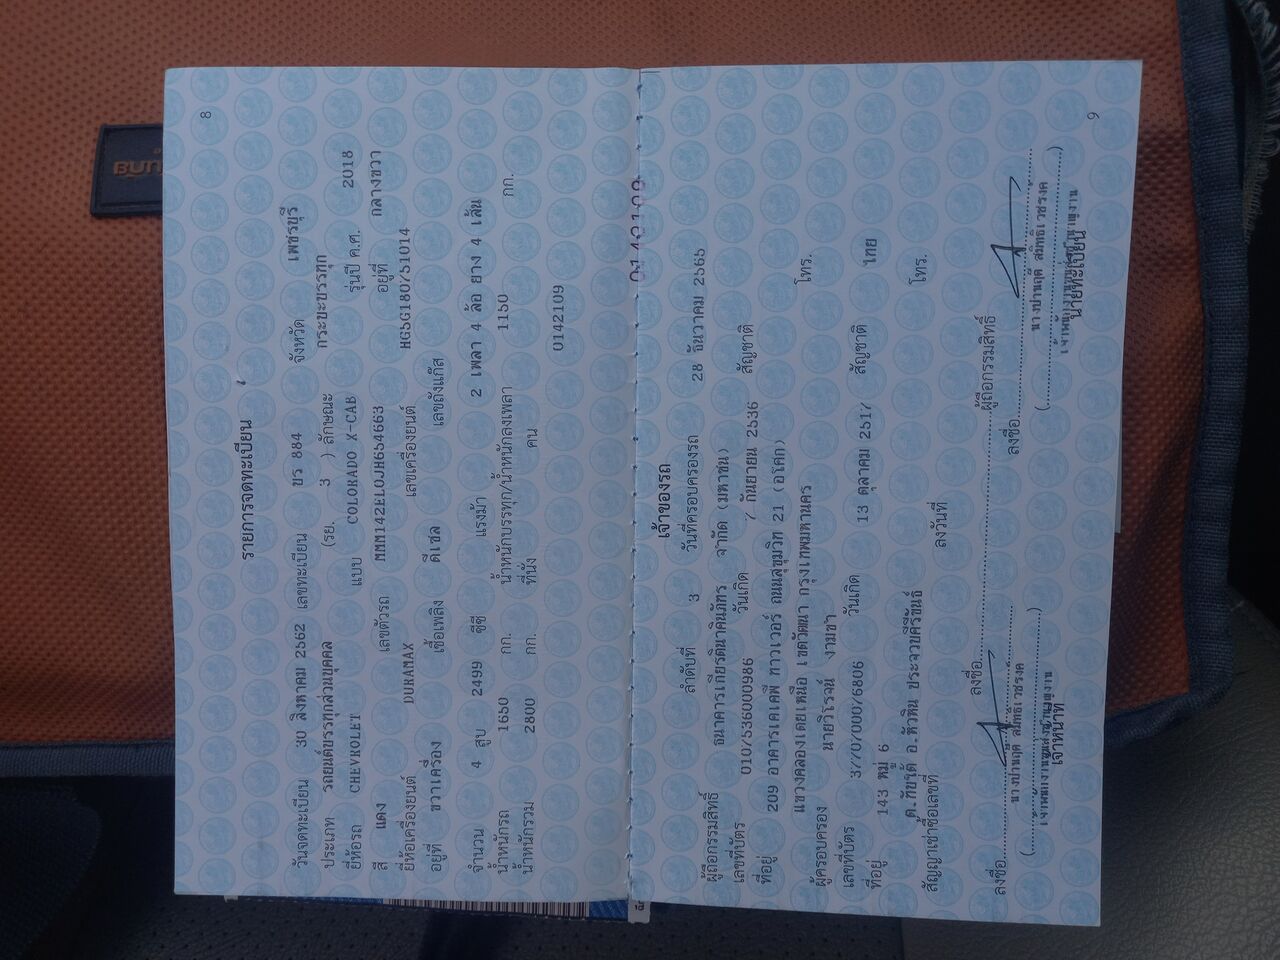 8
รายการจดทะเบียน
วันจดทะเบียน 30 สิงหาคม 2562 เลขทะเบียน ขร 884 จังหวัด เพชรบุรี
ประเภท รถยนต์บรรทุกส่วนบุคคล (รย. 3 ) ลักษณะ กระบะบรรทุก
ยี่ห้อรถ CHEVROLET แบบ COLORADO X-CAB รุ่นปี ค.ศ. 2018
สี แดง เลขตัวรถ MMM142EL0JH654663 อยู่ที่ กลางขวา
ยี่ห้อเครื่องยนต์ DURAMAX เลขเครื่องยนต์ HG5G180751014
อยู่ที่ ขวาเครื่อง เชื้อเพลิง ดีเซล เลขถังแก๊ส
จำนวน 4 สูบ 2499 ซีซี แรงม้า 2 เพลา 4 ล้อ ยาง 4 เส้น
น้ำหนักรถ 1650 กก. น้ำหนักบรรทุก/น้ำหนักลงเพลา 1150 กก.
น้ำหนักรวม 2800 กก. ที่นั่ง คน
0142109
เจ้าของรถ
ลำดับที่ 3 วันที่ครอบครองรถ 28 ธันวาคม 2565
ผู้ถือกรรมสิทธิ์ ธนาคารเกียรตินาคินภัทร จำกัด (มหาชน)
เลขที่บัตร 0107536000986 วันเกิด 7 กันยายน 2536 สัญชาติ
ที่อยู่ 209 อาคารเคเคพี ทาวเวอร์ ถนนสุขุมวิท 21 (อโศก)
แขวงคลองเตยเหนือ เขตวัฒนา กรุงเทพมหานคร โทร.
ผู้ครอบครอง นายวิโรจน์ งามขำ
เลขที่บัตร 3770700076806 วันเกิด 13 ตุลาคม 2517 สัญชาติ ไทย
ที่อยู่ 143 หมู่ 6
ต.ทับใต้ อ.หัวหิน ประจวบคีรีขันธ์ โทร.
สัญญาเช่าซื้อเลขที่ ลงวันที่
ลงชื่อ ผู้ถือกรรมสิทธิ์
ลงชื่อ ลงชื่อ
เจ้าหน้าที่ นายทะเบียน
9